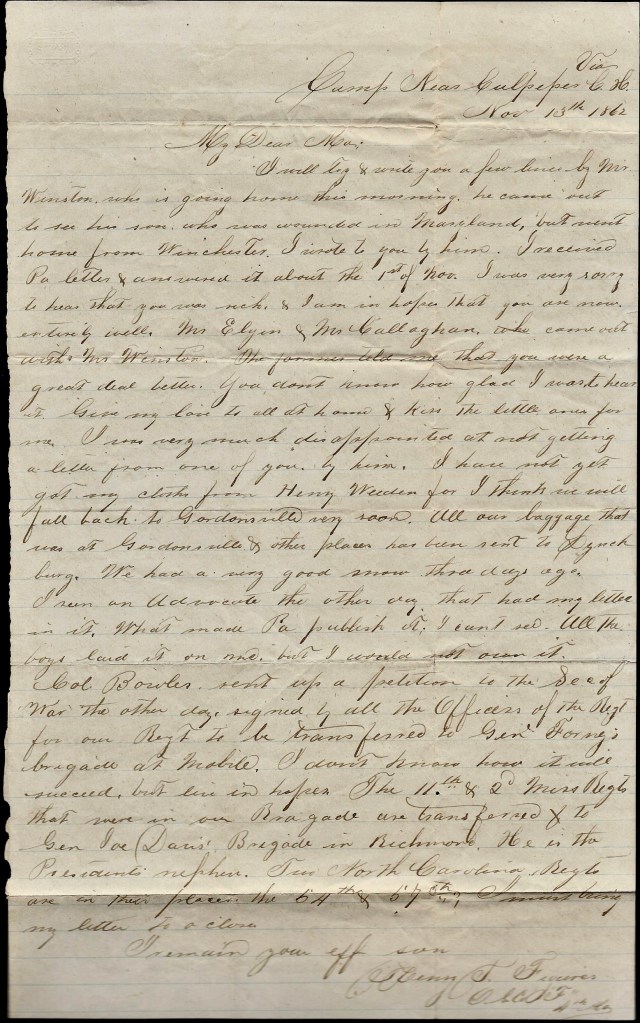 Via
Camp Near Culpeper C. H.
Nov 13th 1862
My Dear Ma;
I will try & write you a few lines by Mr.
Winston, who is going home this morning. he came out
to see his son, who was wounded in Maryland, but went
home from Winchester. I wrote to you by him. I received
Pa letter & answered it about the 1st of Nov. I was very sorry
to hear that you was sick, & I am in hopes that you are now,
entirely well. Mr Elgin & Mr Callaghan, who came out
with Mr Winston. The former told me that you were a
great deal better. You dont know how glad I was to hear
it. Give my love to all at home & kiss the little ones for
me. I was very much disappointed at not getting
a letter from one of you, by him. I have not yet
got my cloths from Henry Weeden for I think we will
fall back to Gordonsville very soon. All our baggage that
was at Gordonsville & other places has been sent to Lynch
burg. We had a very good snow three days ago.
I seen an Advocate the other day that had my letter
in it. What made Pa publish it; I cant see. All the
boys laid it on me, but I would not own it.
Col Bowles sent up a petition to the Sec of
War the other day, signed by all the Officers of the Regt
for our Regt to be transferred to Gen. Forney's
brigade at Mobile. I don't know how it will
succeed, but live in hopes. The 11.th & 2d Miss Regts
that were in our Bragade are transferred & to
Gen Joe Davis' Brigade in Richmond. He is the
Presidents nephew. Two North Carolina Regts
are in their places. the 54th & 57th; I must bring
my letter to a close
I remain your aff son
Henry T.
4th